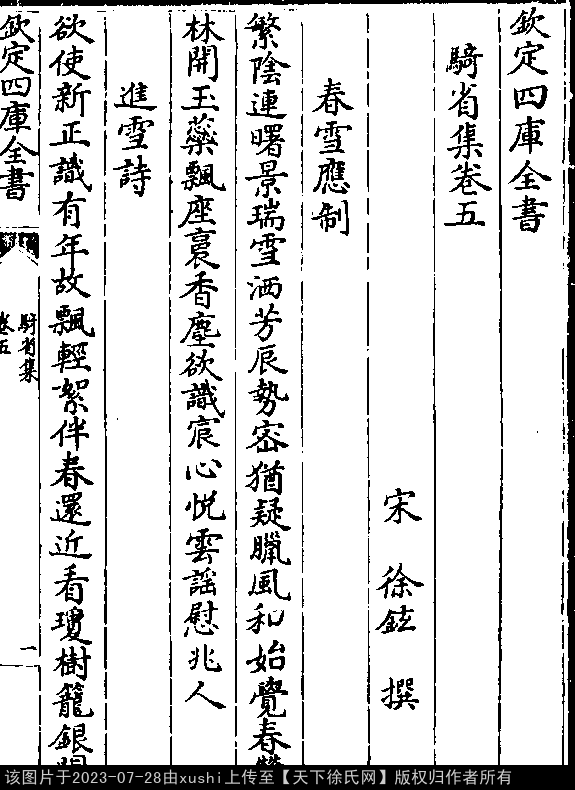 欽定四庫全書
騎省集卷五
宋 徐鉉 撰
春雪應制
繁陰連曙景瑞雪洒芳辰勢密猶疑臘風和始覺春
林開玉蘂飄座裛香塵欲識宸心悅雲謡慰兆人
進雪詩
欲使新正識有年故飄輕絮伴春還近看瓊樹籠銀
欽定四庫全書
騎省集
卷五
一
该图片于2023-07-28由xushi上传至【天下徐氏网】版权归作者所有